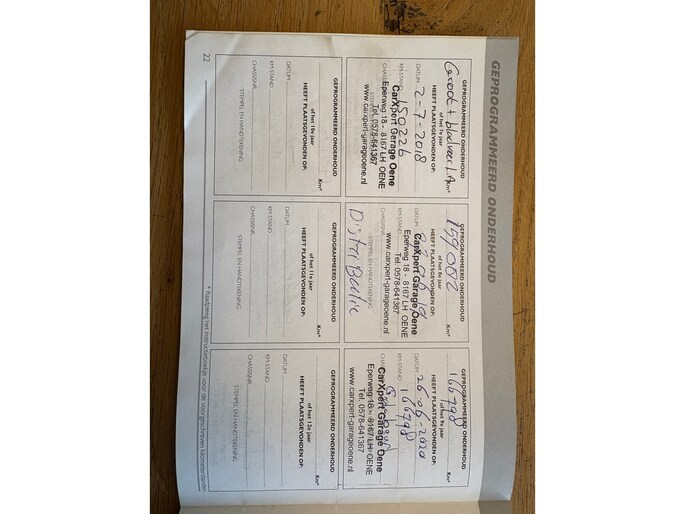 GEPROGRAMMEERD ONDERHOUD
GEPROGRAMMEERD ONDERHOUD
Groot + Km*
of het 7e jaar
HEEFT PLAATSGEVONDEN OP:
DATUM 2-7-2018
KM-STAND 150226
CHASSISNR.
CarXpert Garage Oene
Eperweg 18 - 8167 LH OENE
Tel. 0578-641367
www.carxpert-garageoene.nl
GEPROGRAMMEERD ONDERHOUD
159082 Km*
of het 8e jaar
HEEFT PLAATSGEVONDEN OP:
DATUM
KM-STAND
CHASSISNR.
CarXpert Garage Oene
Eperweg 18 - 8167 LH OENE
Tel. 0578-641367
www.carxpert-garageoene.nl
STEMPEL EN HANDTEKENING
GEPROGRAMMEERD ONDERHOUD
166798 Km*
of het 9e jaar
HEEFT PLAATSGEVONDEN OP:
DATUM 26-06-2020
KM-STAND 166798
CarXpert Garage Oene
Eperweg 18 - 8167 LH OENE
Tel. 0578-641367
www.carxpert-garageoene.nl
GEPROGRAMMEERD ONDERHOUD
Km*
of het 10e jaar
HEEFT PLAATSGEVONDEN OP:
DATUM
KM-STAND
CHASSISNR.
STEMPEL EN HANDTEKENING
GEPROGRAMMEERD ONDERHOUD
Km*
of het 11e jaar
HEEFT PLAATSGEVONDEN OP:
DATUM
KM-STAND
CHASSISNR.
STEMPEL EN HANDTEKENING
GEPROGRAMMEERD ONDERHOUD
Km*
of het 12e jaar
HEEFT PLAATSGEVONDEN OP:
DATUM
KM-STAND
CHASSISNR.
STEMPEL EN HANDTEKENING
22
* Raadpleeg het instructieboekje voor de voorgeschreven kilometerstanden